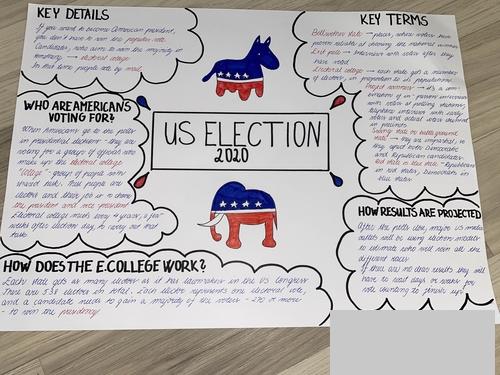 KEY DETAILS
If you want to become American president,
you don't have to win the popular vote.
Candidates, who aims to win the majority in
→ electoral college
In this time people vote by mail
WHO ARE AMERICANS
VOTING FOR?
When Americans go to the polls
in presidential elections - they are
voting for a group of officials who
make up the electoral college
"College" - group of people with
shared task. These people are
electors and their job is to choose
the president and vice president.
Electoral college meets every 4 years, a few
weeks after election day, to carry out that
task
HOW DOES THE E.COLLEGE WORK?
Each state gets as many electors as it has lawmakers in the US Congress
There are 538 electors in total. Each elector represents one electoral vote,
and a candidate needs to gain a majority of the votes - 270 or more
- to win the presidency
US ELECTION
2020
KEY TERMS
Bellwether state → places, where voters have
Exit poll → interviews with voters after they
have voted
Electoral college → each state gets a number
of electors, in proportion to its population
Project
Swing state or battleground
state
and Republican candidates
Red state vs blue state - Republicans
in red states, Democrats in
blue states
HOW RESULTS ARE PROJECTED
After the polls close, major US media
outlets will be using election models
to estimate who will win all the
different races
If there are no clear results they will
have to wait days or weeks for
vote counting to finish up